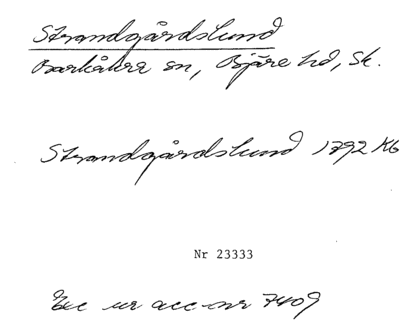 Strandgårdslund
Barkåkra sn, Bjäre hd, Sk.
Strandgårdslund 1792 KB
Nr 23333
Exc ur acc nr 7409